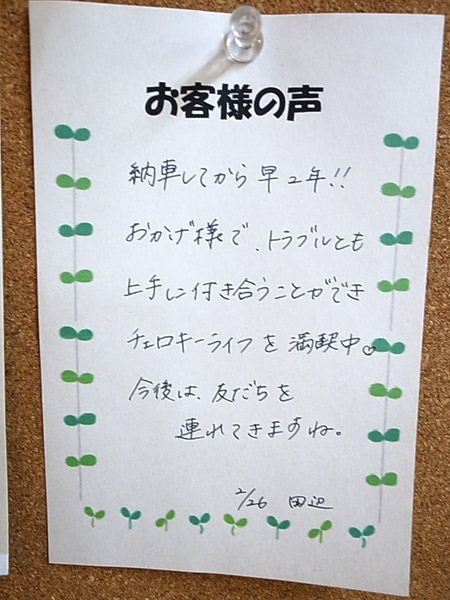 お客様の声
納車してから早2年!!
おかげ様で、トラブルとも
上手に付き合うことができ
チェロキーライフを満喫中♡
今後は、友だちを
連れてきますね。
2/26 田辺